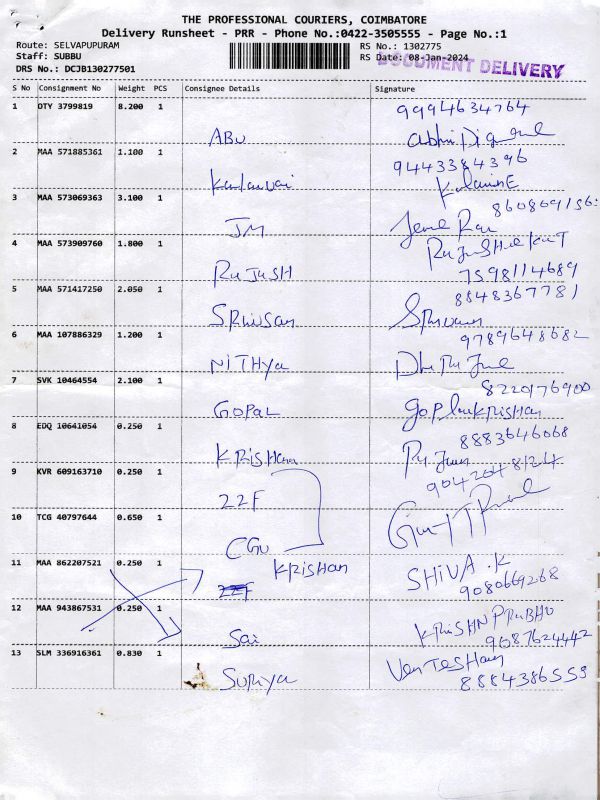 THE PROFESSIONAL COURIERS, COIMBATORE
Delivery Runsheet - PRR - Phone No.:0422-3505555 - Page No.:1
Route: SELVAPUPURAM
RS No.: 1302775
Staff: SUBBU
RS Date: 08-Jan-2024
DOCUMENT DELIVERY
DRS No.: DCJB130277501
S No Consignment No Weight PCS Consignee Details Signature
1 OTY 3799819 8.200 1
9994634764
ABU
2 MAA 571885361 1.100 1
9443384396
3 MAA 573069363 3.100 1
JM
4 MAA 573909760 1.800 1
RUJUSH
7598114689
5 MAA 571417250 2.050 1
8848367781
6 MAA 107886329 1.200 1
9789648682
NITHYA
7 SVK 10464554 2.100 1
8220176900
GOPAL
8 EDQ 10641054 0.250 1
8883646068
9 KVR 609163710 0.250 1
22F
10 TCG 40797644 0.650 1
CGU
11 MAA 862207521 0.250 1
KRISHAN
SHIVA .K
9080669268
12 MAA 943867531 0.250 1
Sai
KRISHN PRUBHU
9087624442
13 SLM 336916361 0.830 1
SURYA
8884386559